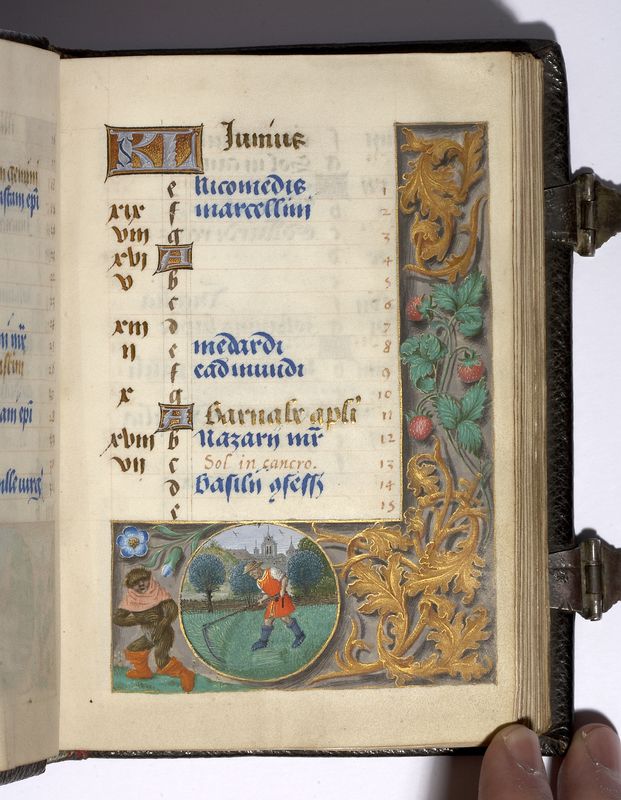 KL Junius
e Nicomedis 1
xix f marcellini 2
viii g 3
xvi A 4
v b 5
c 6
xiii d 7
ii e medardi 8
f eadmundi 9
x g 10
A Barnabe apli 11
xviii b Nazarij mr̄ 12
vii c Sol in cancro. 13
d Basilij ꝯfess 14
e 15